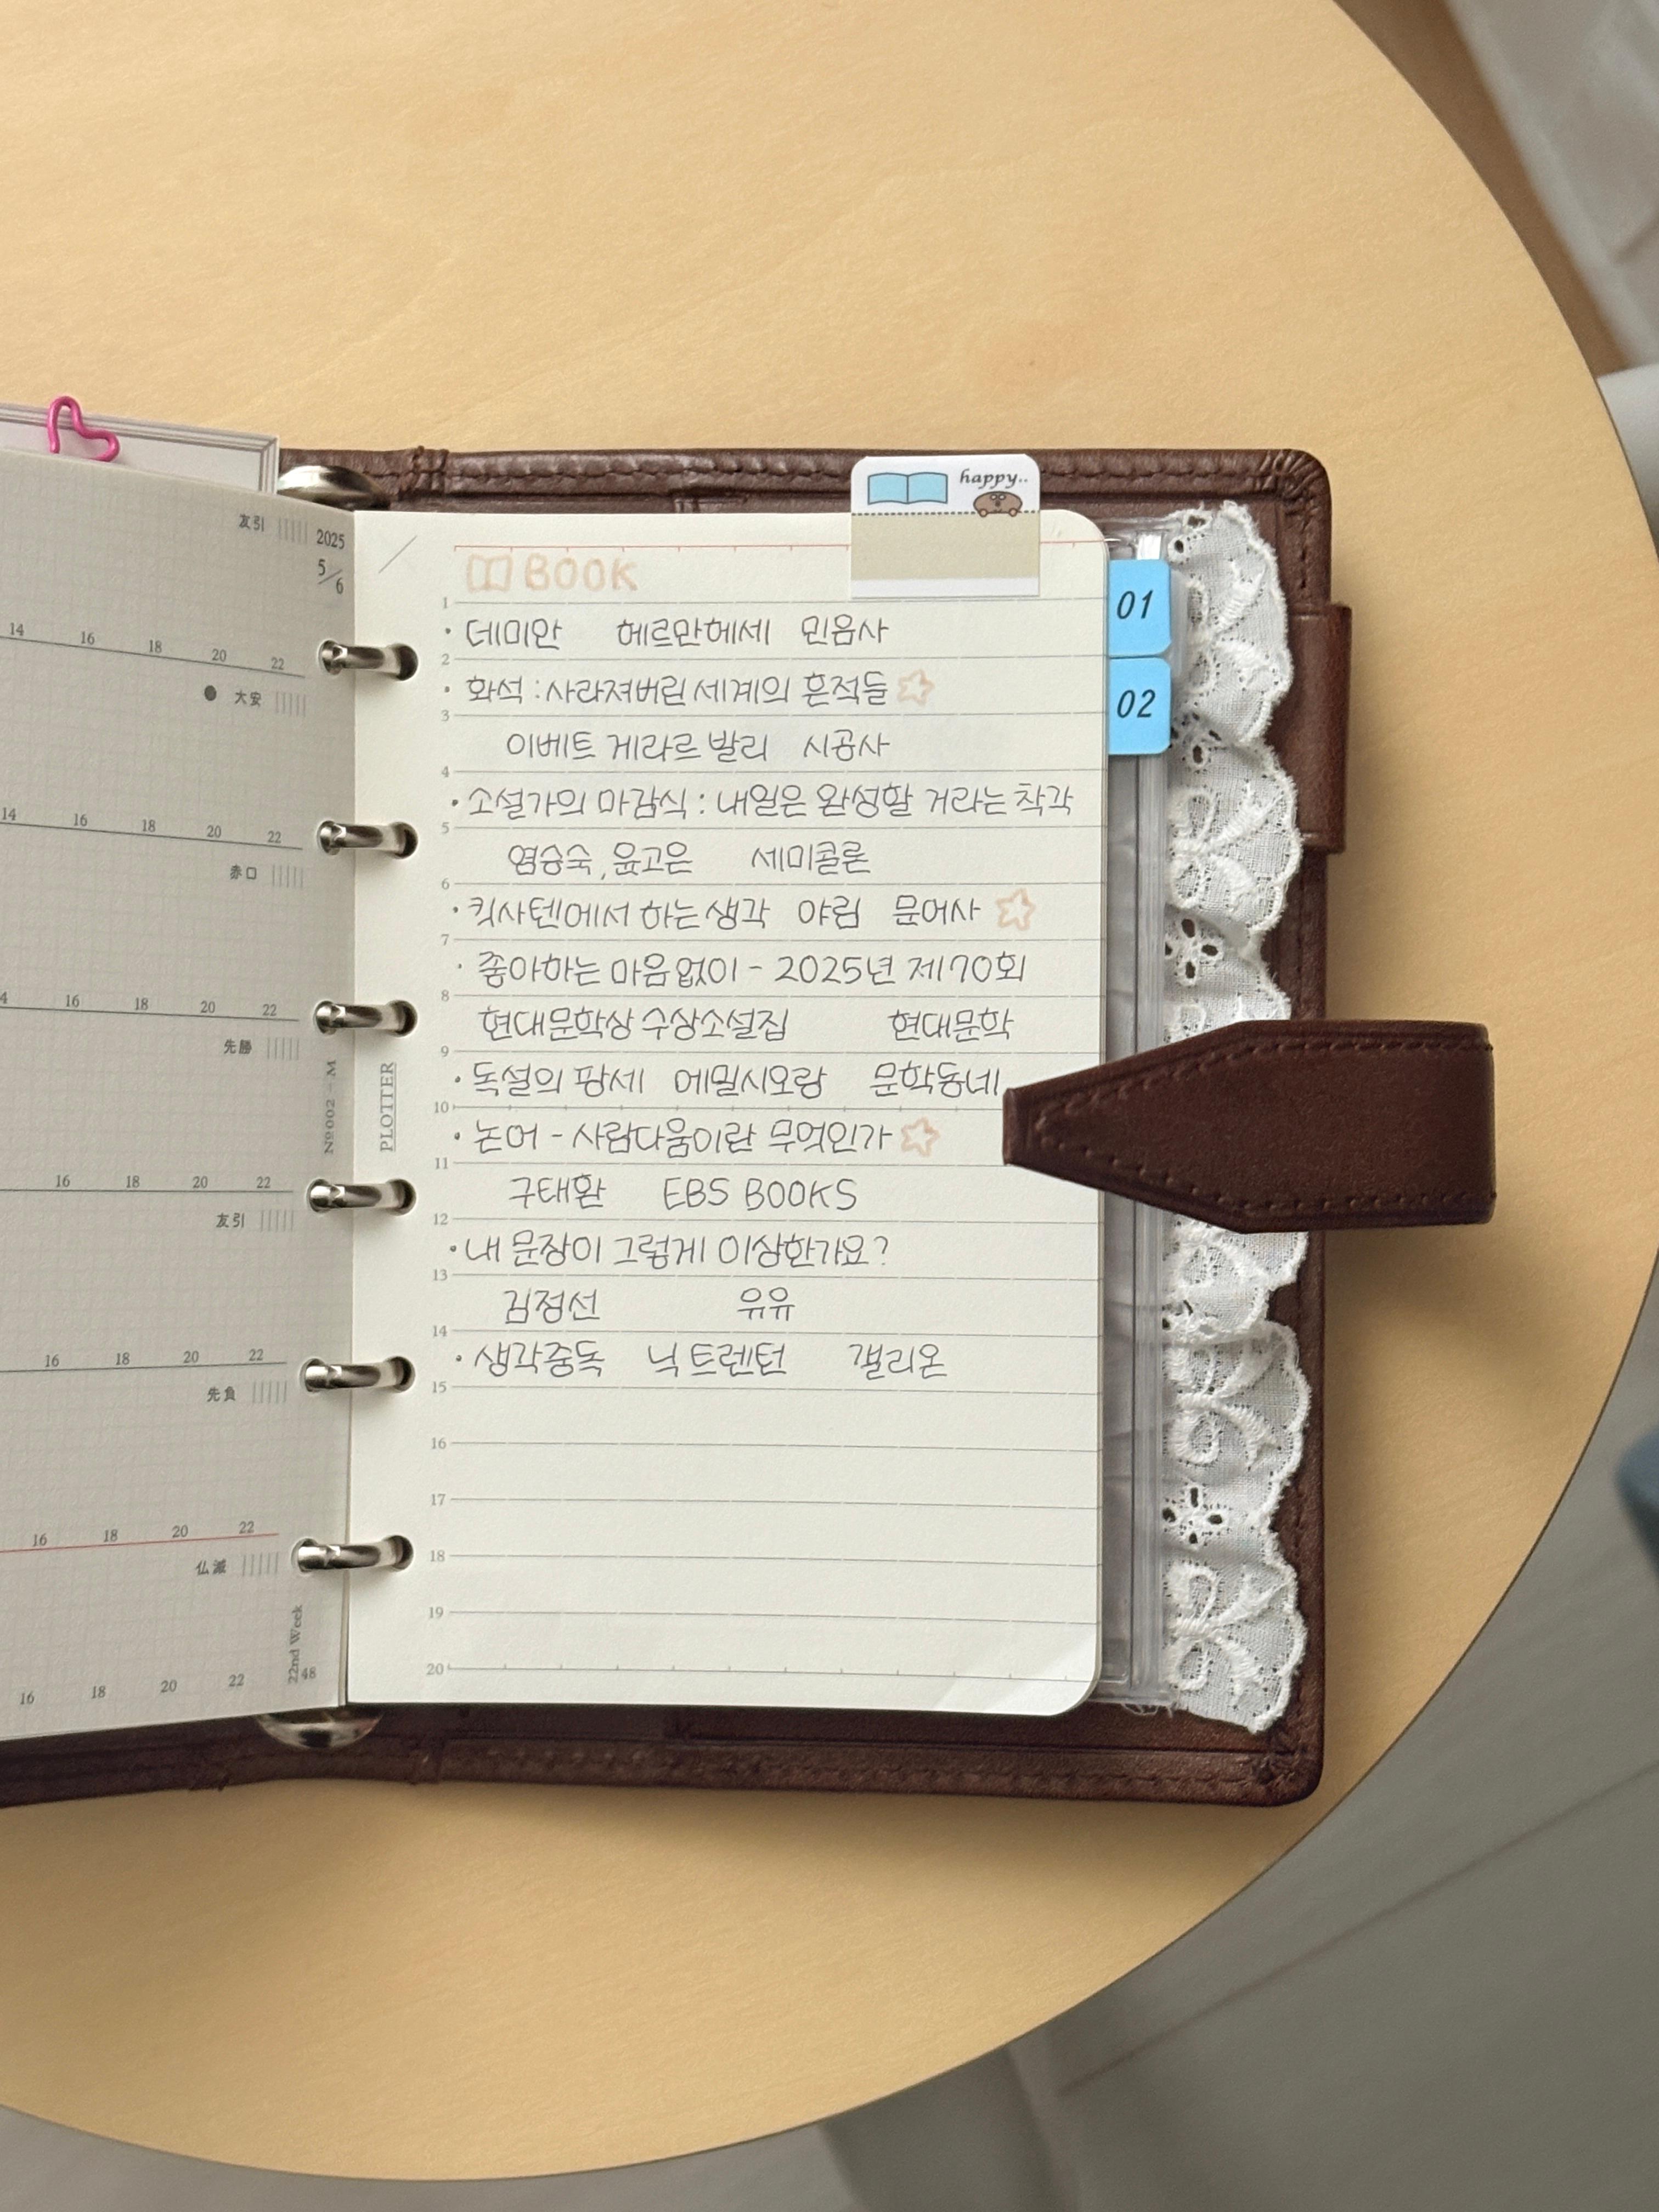 友引
2025
5/6
14 16 18 20 22
大安
14 16 18 20 22
赤口
4 16 18 20 22
先勝
16 18 20 22
友引
16 18 20 22
先負
16 18 20 22
仏滅
16 18 20 22
№002-M
22nd Week
48
PLOTTER
happy..
BOOK
1
· 데미안 헤르만헤세 민음사
2
· 화석 : 사라져버린 세계의 흔적들
3
이베트 게라르 발리 시공사
4
· 소설가의 마감식 : 내일은 완성할 거라는 착각
5
염승숙, 윤고은 세미콜론
6
· 킷사텐에서 하는 생각 야림 문어사
7
· 좋아하는 마음 없이 - 2025년 제70회
8
현대문학상 수상소설집 현대문학
9
· 독설의 팡세 에밀시오랑 문학동네
10
· 논어 - 사람다움이란 무엇인가
11
구태환 EBS BOOKS
12
· 내 문장이 그렇게 이상한가요?
13
김정선 유유
14
· 생각중독 닉 트렌턴 갤리온
15
16
17
18
19
20
01
02